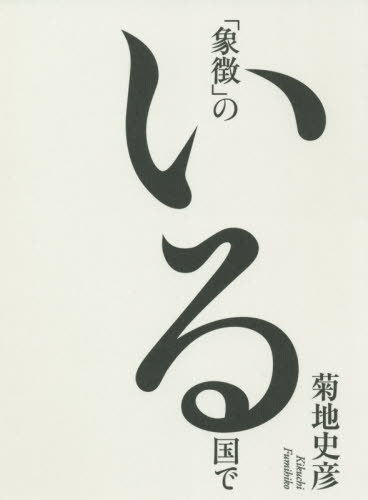 「象徴」の
いる
国で
菊地史彦
Kikuchi
Fumihiko